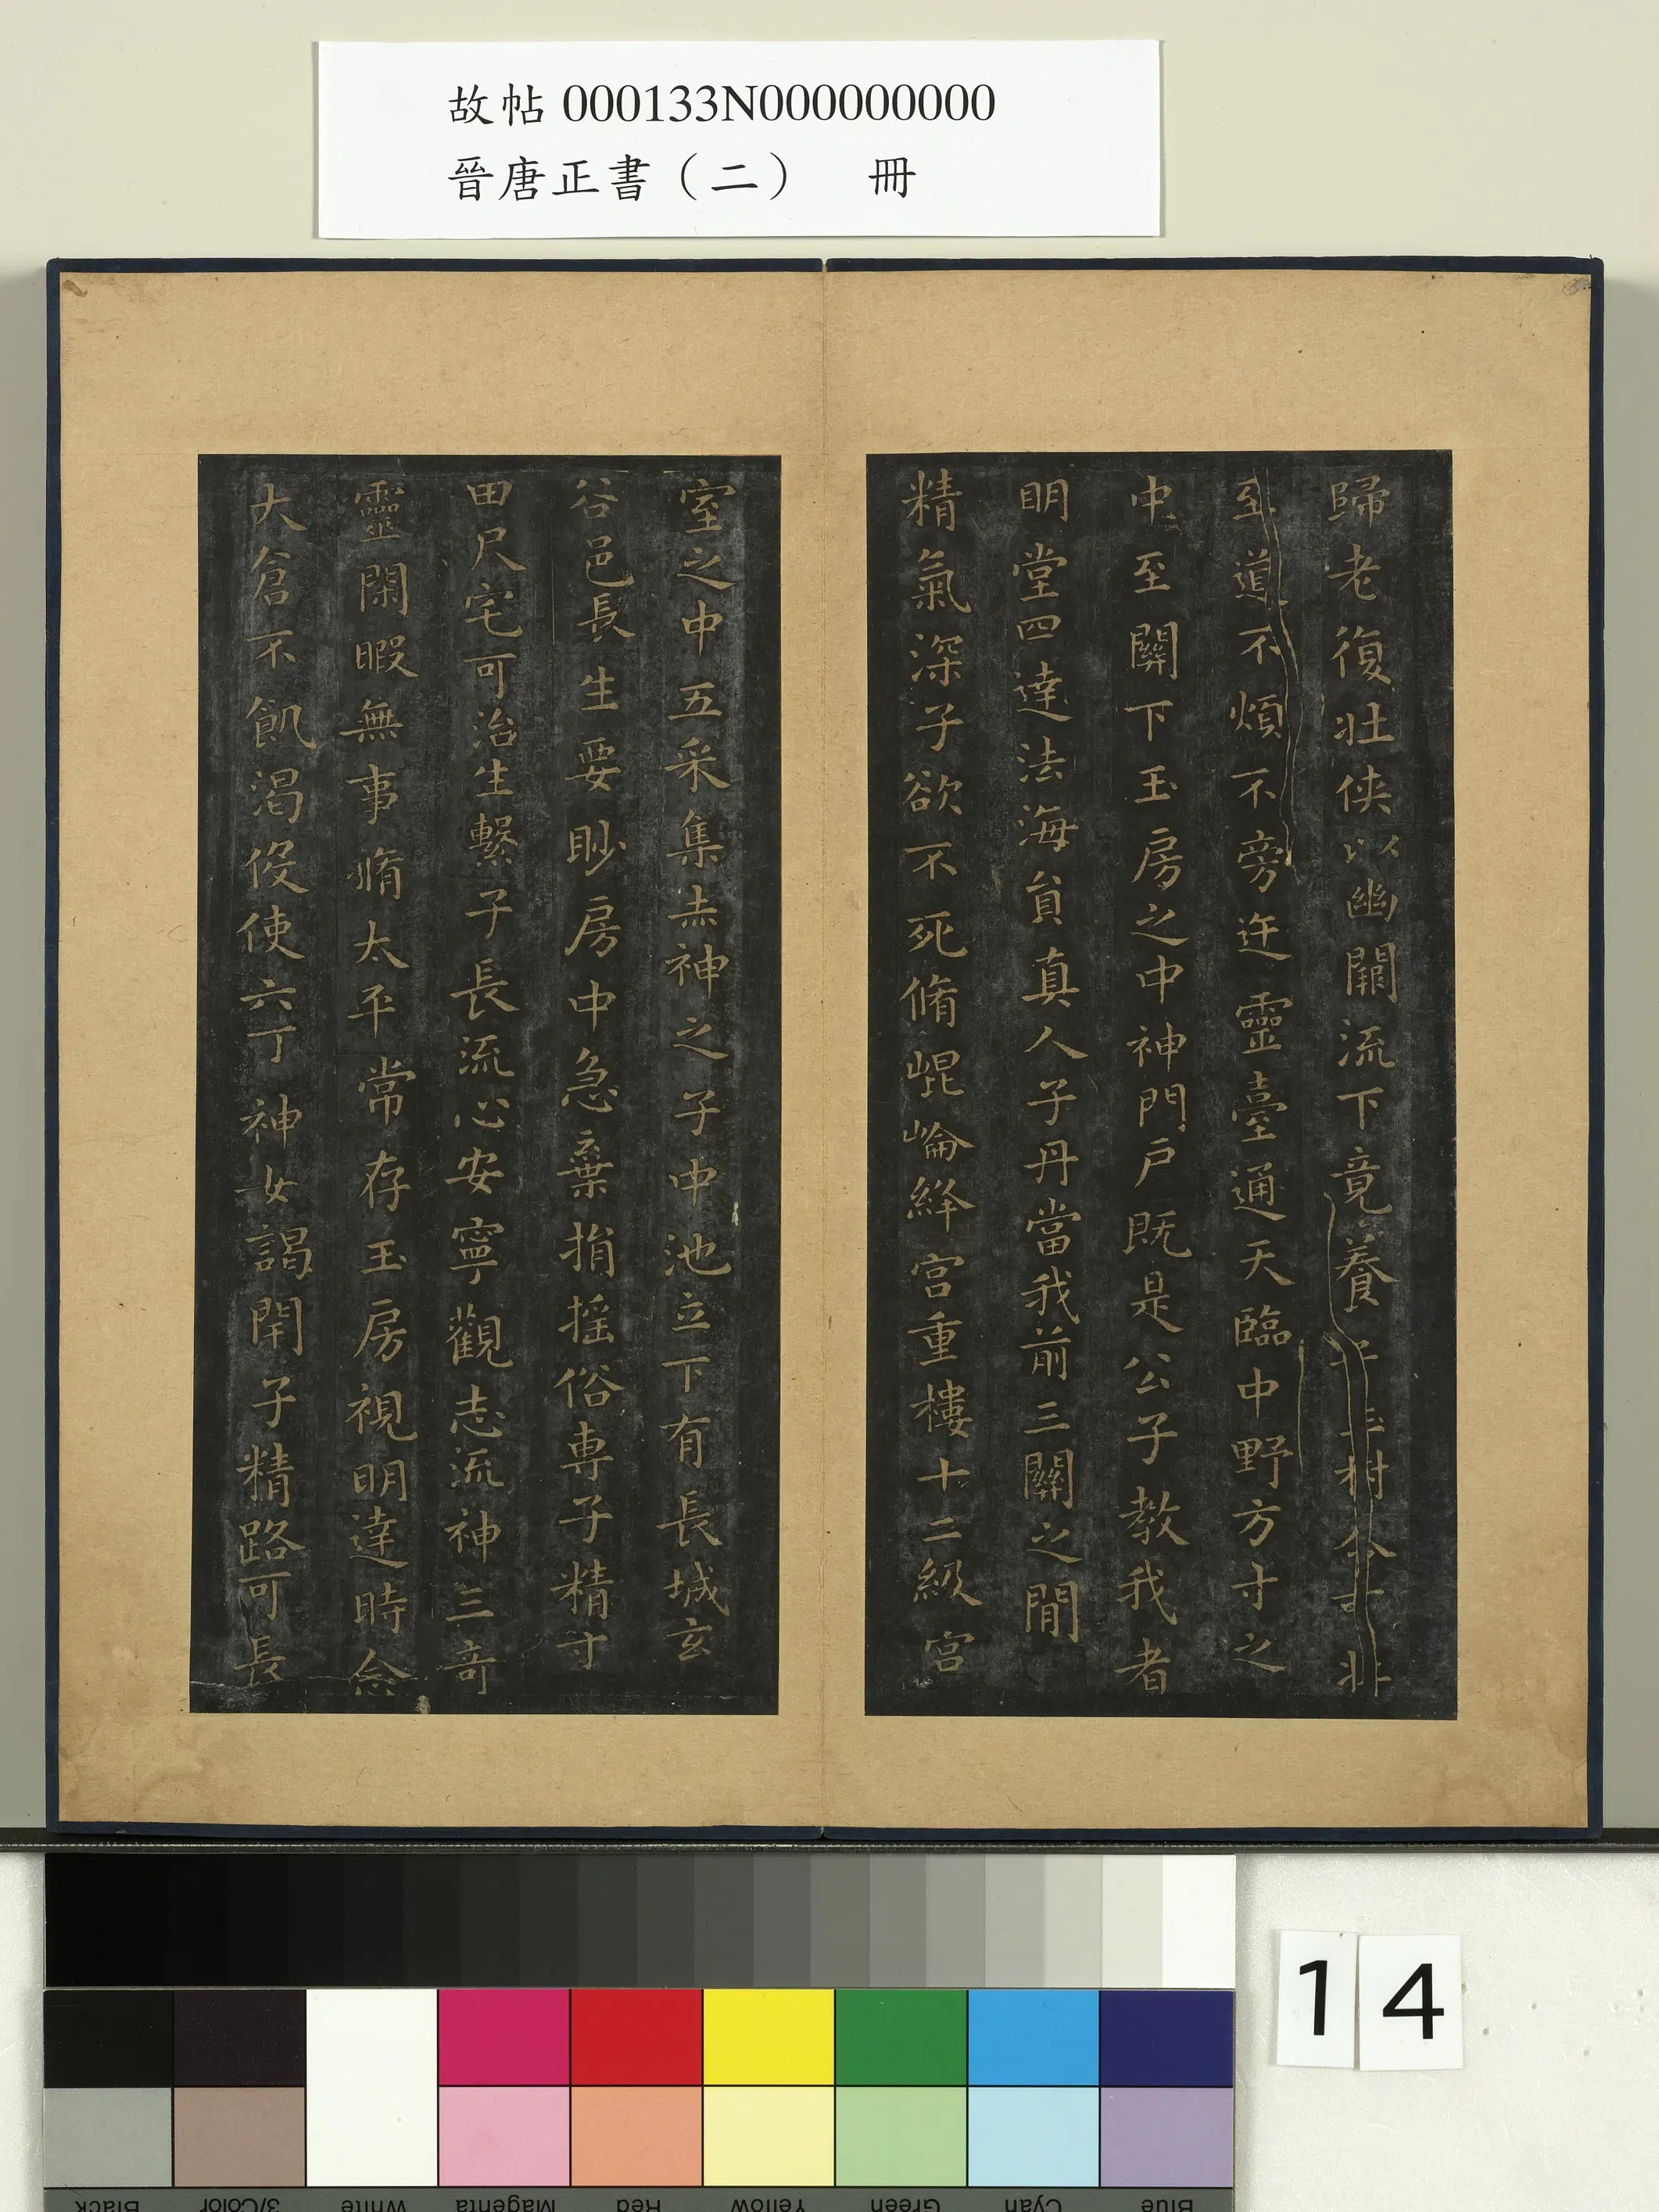 故帖 000133N000000000
晉唐正書（二）　冊
歸老復壯俠以幽闕流下竟養子玉樹令可非
至道不煩不旁迕靈臺通天臨中野方寸之
中至關下玉房之中神門戶既是公子教我者
明堂四達法海負真人子丹當我前三關之閒
精氣深子欲不死脩崐崘絳宮重樓十二級宮
室之中五采集赤神之子中池立下有長城玄
谷邑長生要眇房中急棄捐搖俗専子精寸
田尺宅可治生繫子長流心安寧觀志流神三奇
靈閑暇無事脩太平常存玉房視明達時念
大倉不飢渴役使六丁神女謁閉子精路可長
14
Black
3/Color
White
Magenta
Red
Yellow
Green
Cyan
Blue